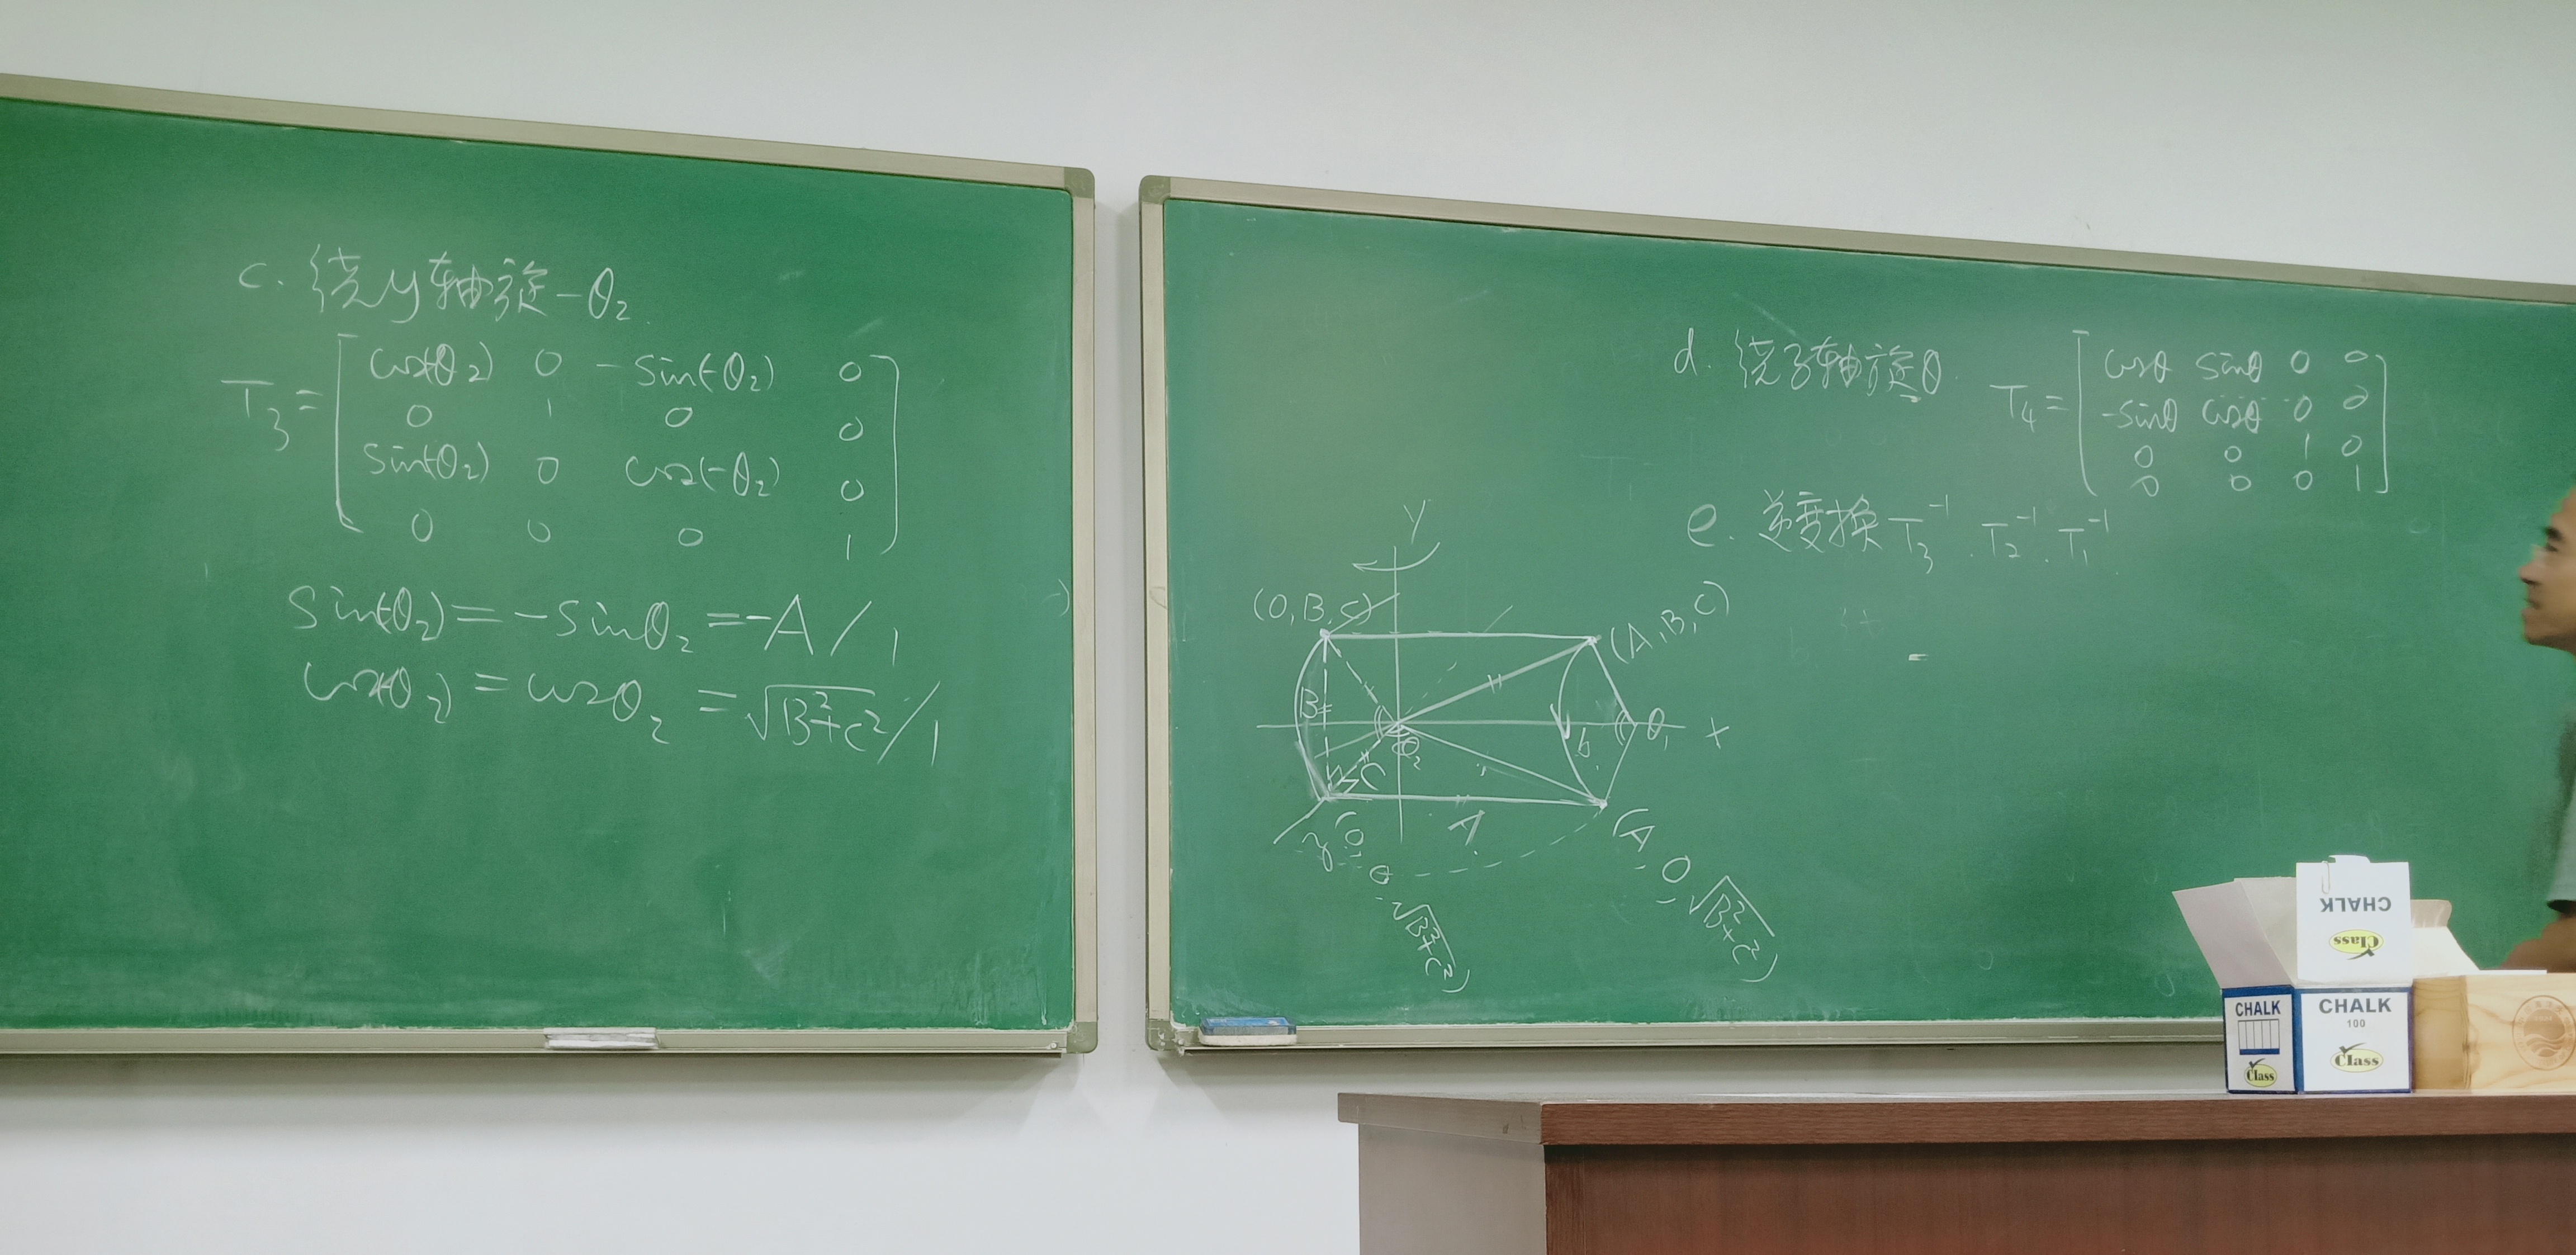 c. 绕y轴旋-θ₂.
T₃=
cos(-θ₂) 0 -sin(-θ₂) 0
0 1 0 0
sin(-θ₂) 0 cos(-θ₂) 0
0 0 0 1
sin(-θ₂) = -sinθ₂ = -A/1
cos(-θ₂) = cosθ₂ = √B²+C²/1
d. 绕z轴旋θ.
T₄=
cosθ sinθ 0 0
-sinθ cosθ 0 0
0 0 1 0
0 0 0 1
e. 逆变换 T₃⁻¹.T₂⁻¹.T₁⁻¹
Y
(0,B,C)
(A,B,C)
B
θ₁
X
b
θ₂
C
A
z
(0,0,√B²+C²)
(A,0,√B²+C²)
CHALK
Class
CHALK
Class
CHALK
100
Class